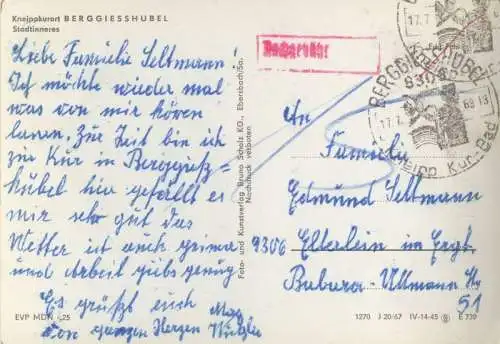 Kneippkurort BERGGIESSHÜBEL
Stadtinneres
Liebe Familie Seltmann!
Ich möchte wieder mal
was von mir hören
lassen. Zur Zeit bin ich
zur Kur in Berggieß=
hübel hier gefällt es
mir sehr gut das
Wetter ist auch prima
und Arbeit gibs genug
Es grüßt euch
von ganzen Herzen
EVP MDN -,25
Foto- und Kunstverlag Bruno Scholz KG., Ebersbach/Sa.
Nachdruck verboten
Nachgebühr
BERGGIESSHÜBEL
8304
17.7.
68-13
Kneipp Kur-Bad
An
Familie
Edmund Seltmann
9306 Elterlein im Erzgb.
Bubara-Uttmann Str
51
1270 J 20/67 IV-14-45 E 739